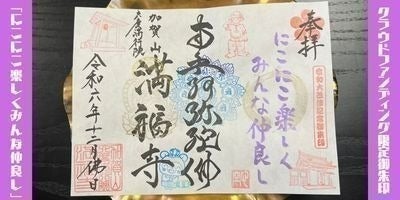 クラウドファンディング限定御朱印
奉拝
にこにこ楽しく
みんな仲良し
加賀山
満福寺
令和六年十二月佛日
「にこにこ楽しくみんな仲良し」